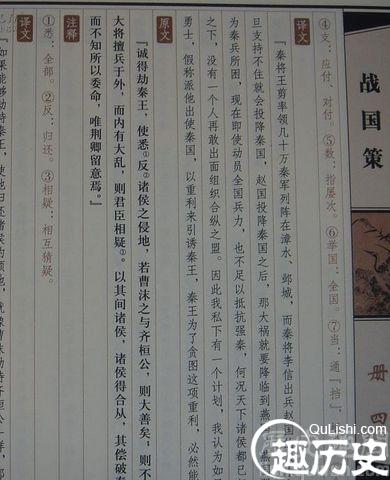 战国策
册 四
④支：应付、对付。⑤数：指屡次。⑥举国：全国。⑦当：通『挡』，
译文
秦将王剪率领几十万秦军列阵在漳水、邺城，而秦将李信出兵赵国
旦支持不住就会投降秦国，赵国投降秦国之后，那大祸就要降临到燕
为秦兵所困，现在即使动员全国兵力，也不足以抵抗强秦，何况天下诸侯都已
之下，没有一个人再敢出面组织合纵之盟。因此我私下有一个计划，我认为如
勇士，假称派他出使秦国，以重利来引诱秦王，秦王为了贪图这项重利，必然能
原文
『诚得劫秦王，使悉①反②诸侯之侵地，若曹沫之与齐桓公，则大善矣；则不
大将擅兵于外，而内有大乱，则君臣相疑③。以其间诸侯，诸侯得合从，其偿破
而不知所以委命，唯荆卿留意焉。』
注释
①悉：全部。②反：归还。③相疑：相互猜疑。
译文
『如果能够劫持秦王，使他归还诸侯的领地，就像曹沫劫持齐桓公一样，那
QuLishi.com
趣历史